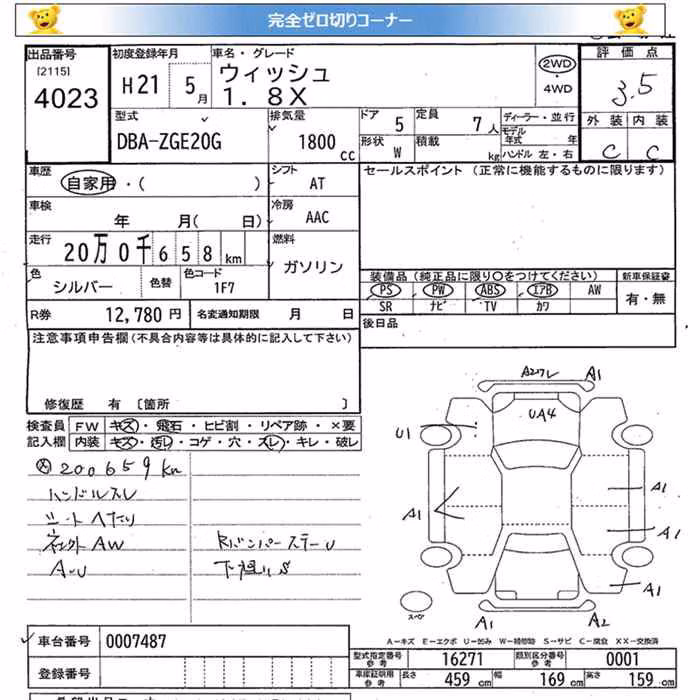 完全ゼロ切りコーナー
出品番号 初度登録年月 車名・グレード 評価点
[2115] H21 5月 ウィッシュ 2WD 3.5
4023 1.8X 4WD
型式 排気量 ドア 5 定員 7人 ディーラー・並行 外装 内装
DBA-ZGE20G 1800cc 形状 W 積載 kg モデル年式 年 C C
ハンドル 左・右
車歴 シフト セールスポイント (正常に機能するものに限ります)
自家用・( ) AT
車検 冷房
年 月( 日) AAC
走行 燃料
20万0千658km ガソリン
色 色替 色コード 装備品(純正品に限り○をつけてください) 新車保証書
シルバー 1F7 PS PW ABS エアB AW 有・無
SR ナビ TV カワ
R券 12,780円 名変通知期限 月 日 後日品
注意事項申告欄(不具合内容等は具体的に記入して下さい)
修復歴 有 [箇所 ]
検査員 FW キズ・飛石・ヒビ割・リペア跡・×要
記入欄 内装 キズ・汚レ・コゲ・穴・スレ・キレ・破レ
200659km
ハンドルスレ
シートヘタリ
AW Rバンパーステー
A2 A1
UA4
U1
A1
A1
A1
A1
スペア
A1 A2
A-キズ E-エクボ U-凹み W-補修跡 S-サビ C-腐食 XX-交換済
車台番号 0007487
型式指定番号参考 16271 類別区分番号参考 0001
登録番号
車庫証明用参考 長さ 459cm 幅 169cm 高さ 159cm